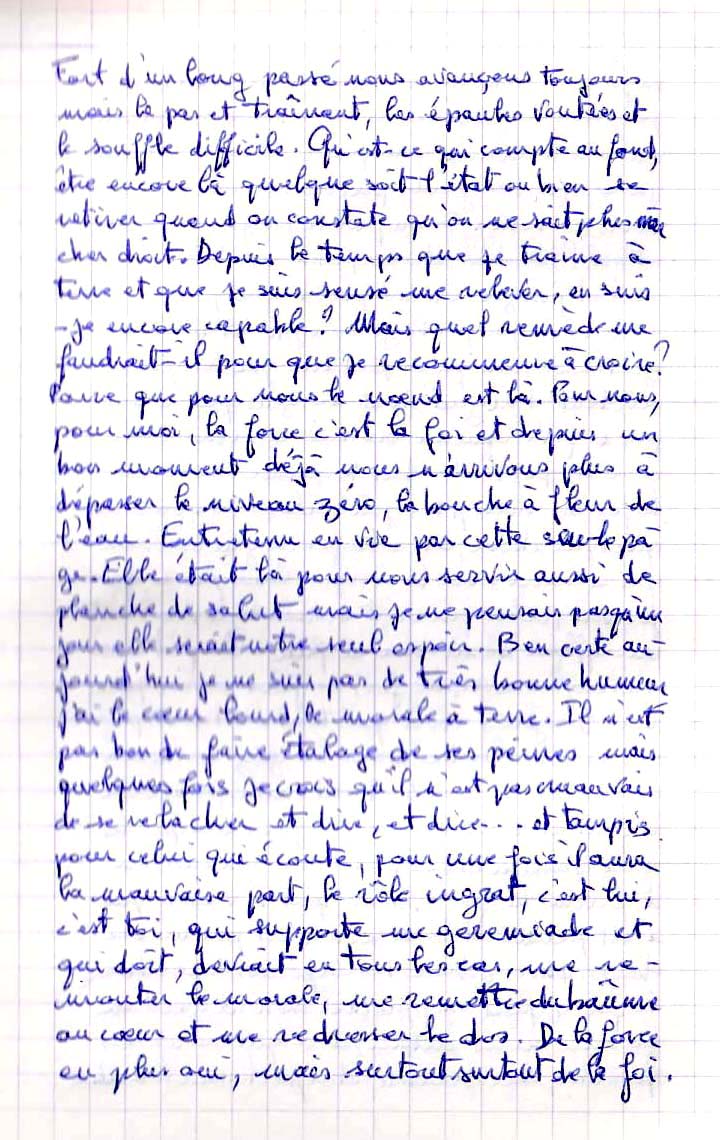 Fort d'un long passé nous avançons toujours
mais le pas et traînant, les épaules voutées et
le souffle difficile. Qu'est-ce qui compte au fond,
être encore là quelque soit l'état ou bien se
retirer quand on constate qu'on ne sait plus mar
cher droit. Depuis le temps que je traîne à
terre et que je suis sensé me relever, en suis
-je encore capable? Mais quel remède me
faudrait-il pour que je recommence à croire?
Parce que pour nous le nœud est là. Pour nous,
pour moi, la force c'est la foi et depuis un
bon moment déjà nous n'arrivons plus à
dépasser le niveau zéro, la bouche à fleur de
l'eau. Entretenu en vie par cette seule pa
ge. Elle était là pour nous servir aussi de
planche de salut mais je ne pensais pas qu'un
jour elle serait notre seul espoir. Ben certe au-
jourd'hui je ne suis pas de très bonne humeur
j'ai le cœur lourd, le morale à terre. Il n'est
pas bon de faire étalage de ses peines mais
quelques fois je crois qu'il n'est pas mauvais
de se relacher et dire, et dire... et tampis
pour celui qui écoute, pour une fois il aura
la mauvaise part, le rôle ingrat, c'est lui,
c'est toi, qui supporte me geremiade et
qui doit, devrait en tous les cas, me re-
monter le morale, me remettre du baûme
au cœur et me redresser le dos. De la force
en plus oui, mais surtout surtout de la foi.